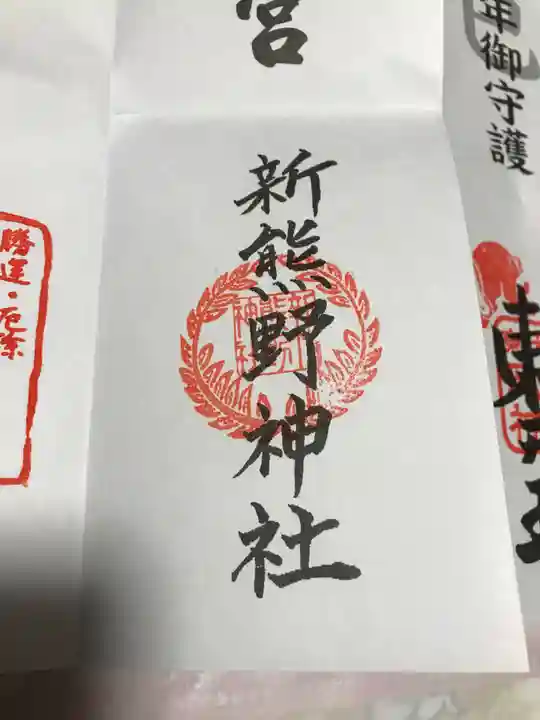 宮
年御守護
新熊野神社
勝運・厄除